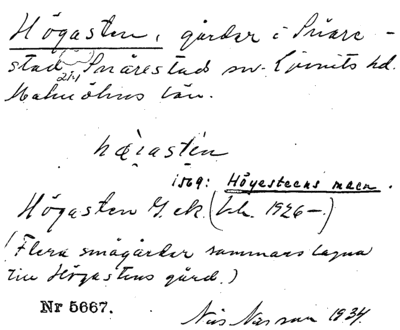 Högasten, gårdar i Snäre-
stad Snårestads sn. Ljunits hd.
Malmöhus län.
hø̀i̯astèn
1569: Höyesteens maen.
Högasten G. ek. (bl. 1926–)
(Flera smågårdar sammanslagna
till Högastens gård.)
Nr 5667.
Nils 1934.